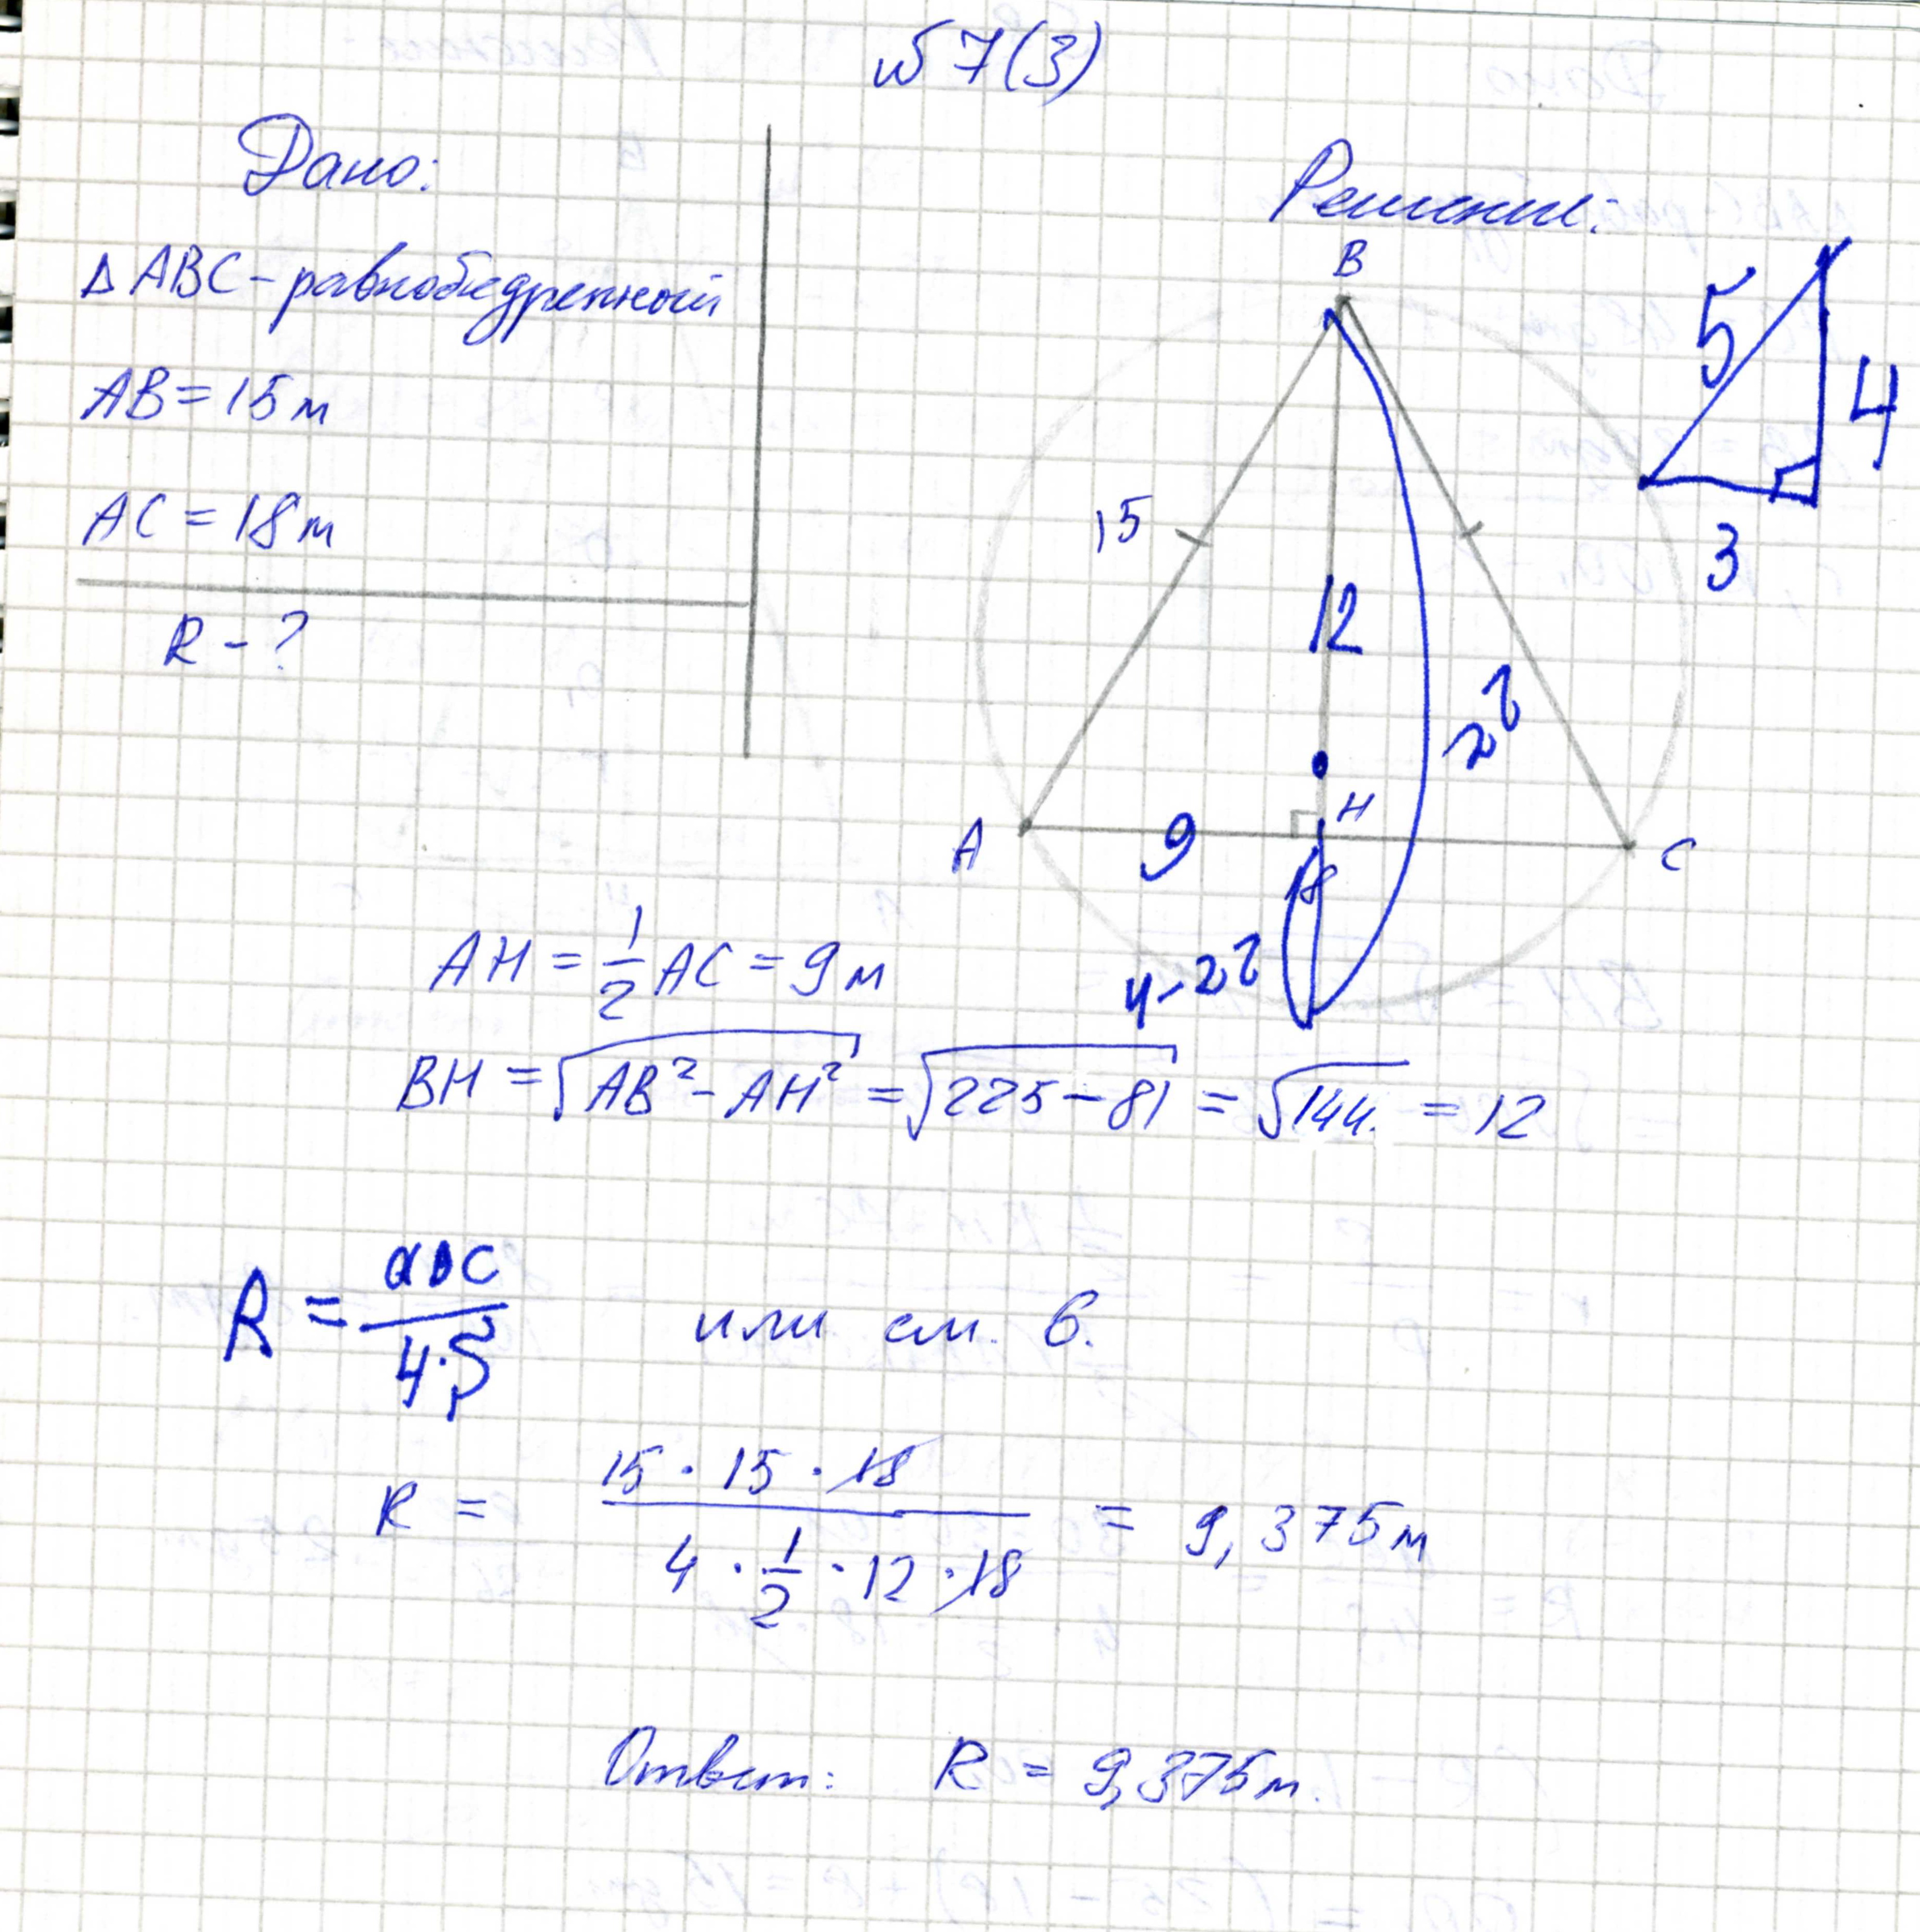 №7(3)
Дано:
Решение:
Δ ABC – равнобедренный
AB = 15 м
AC = 18 м
R - ?
B
15
12
A
9
H
C
18
5
4
3
AH = 1/2 AC = 9 м
BH = √(AB² - AH²) = √(225 - 81) = √144 = 12
R = abc / 4·S или см. 6.
R = 15 · 15 · 18 / 4 · 1/2 · 12 · 18 = 9,375 м
Ответ: R = 9,375 м.